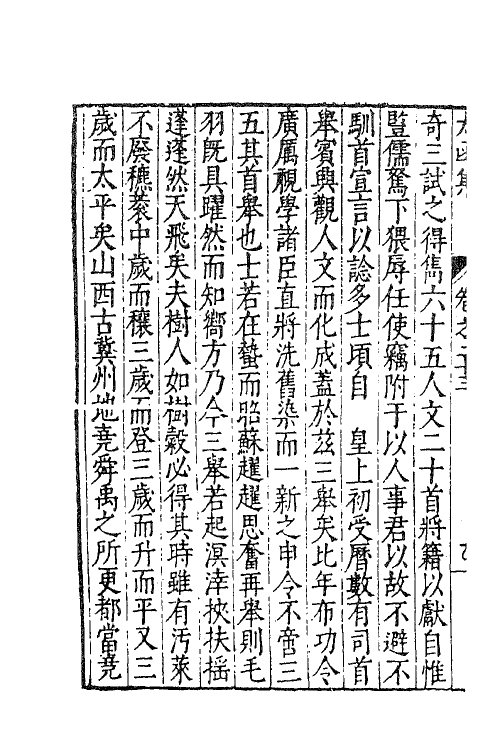 太函集 卷之二十三
奇三試之得雋六十五人文二十首將籍以獻自惟
豎儒駑下猥辱任使竊附于以人事君以故不避不
馴首宣言以諗多士頃自 皇上初受曆數有司首
舉賓興觀人文而化成蓋於茲三舉矣比年布功令
廣厲視學諸臣直將洗舊染而一新之申令不啻三
五其首舉也士若在蟄而昭蘇趯趯思奮再舉則毛
羽旣具躍然而知嚮方乃今三舉若起溟涬挾扶搖
蓬蓬然天飛矣夫樹人如樹穀必得其時雖有汚萊
不廢穮蔉中歲而穰三歲而登三歲而升而平又三
歲而太平矣山西古冀州地堯舜禹之所更都當堯